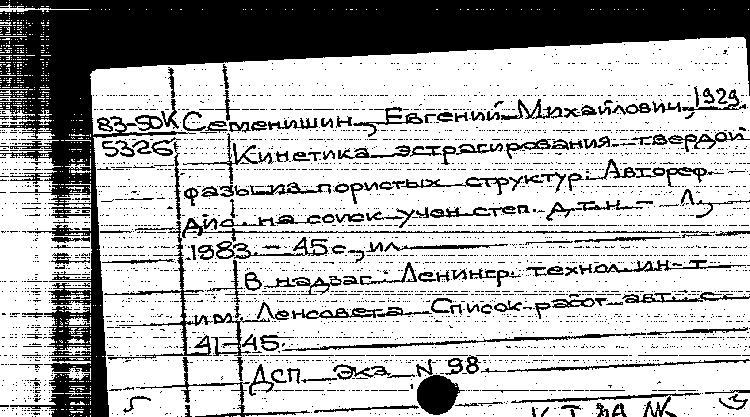 83-5DK Семенишин, Евгений Михайлович, 1929.
5326 Кинетика эстрагирования твердой
фазы из пористых структур: Автореф.
дис. на соиск. учен. степ. д.т.н. - Л.,
1983. - 45 с., ил.
В надзаг.: Ленингр. технол. ин-т
им. Ленсовета. Список работ авт.: с.
41-45.
ДСП. Экз. N 98.